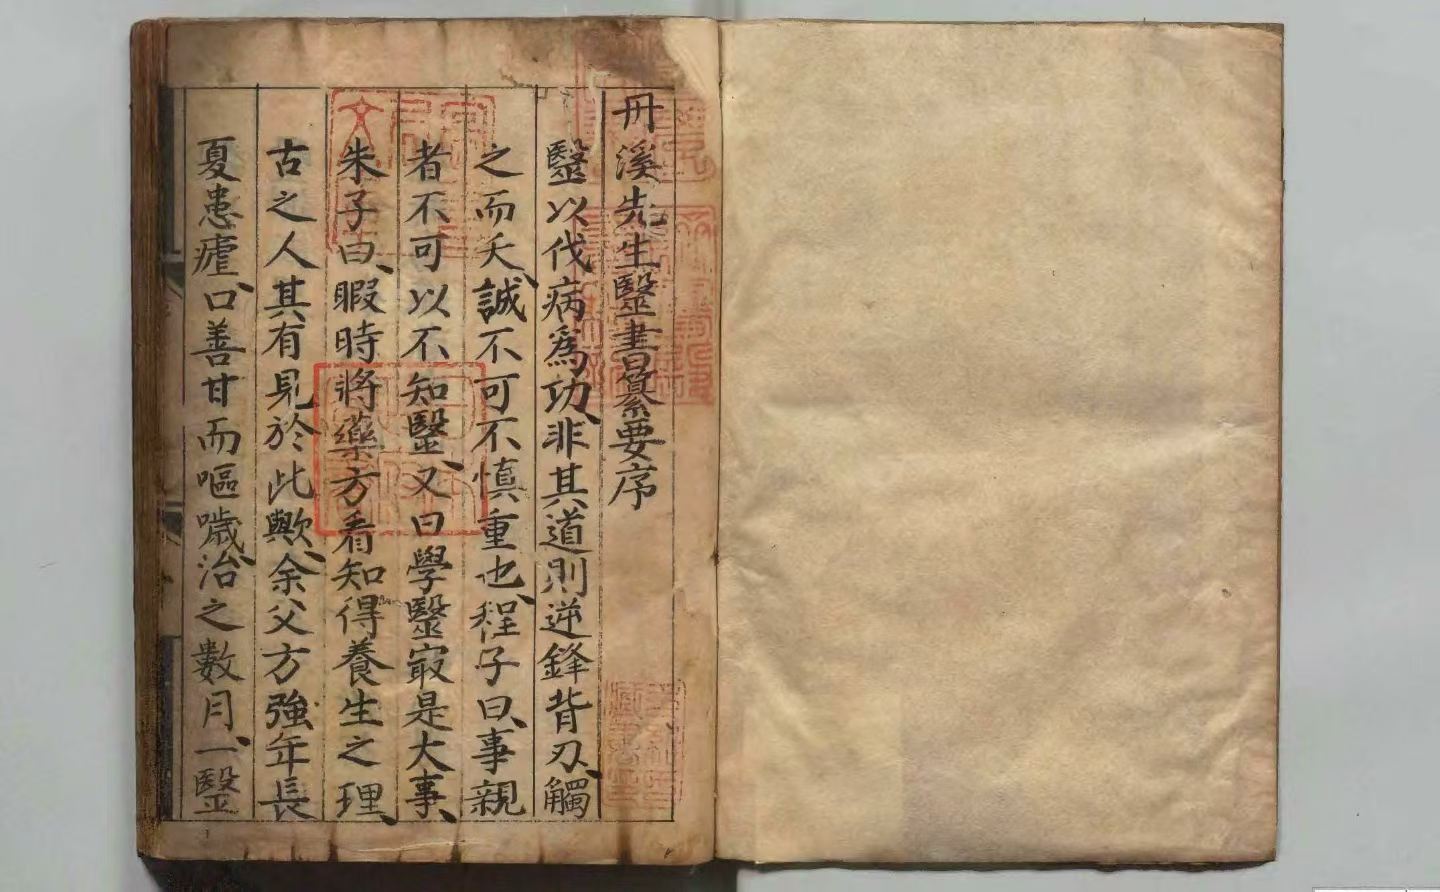 丹溪先生醫書纂要序
毉以伐病爲功、非其道則逆鋒背刃、觸
之而夭、誠不可不慎重也、程子曰、事親
者不可以不知毉、又曰學毉㝡是大事、
朱子曰、暇時將藥方看知得養生之理、
古之人其有見於此歟、余父方強年長
夏患瘧、口善甘而嘔噦、治之數月、一毉